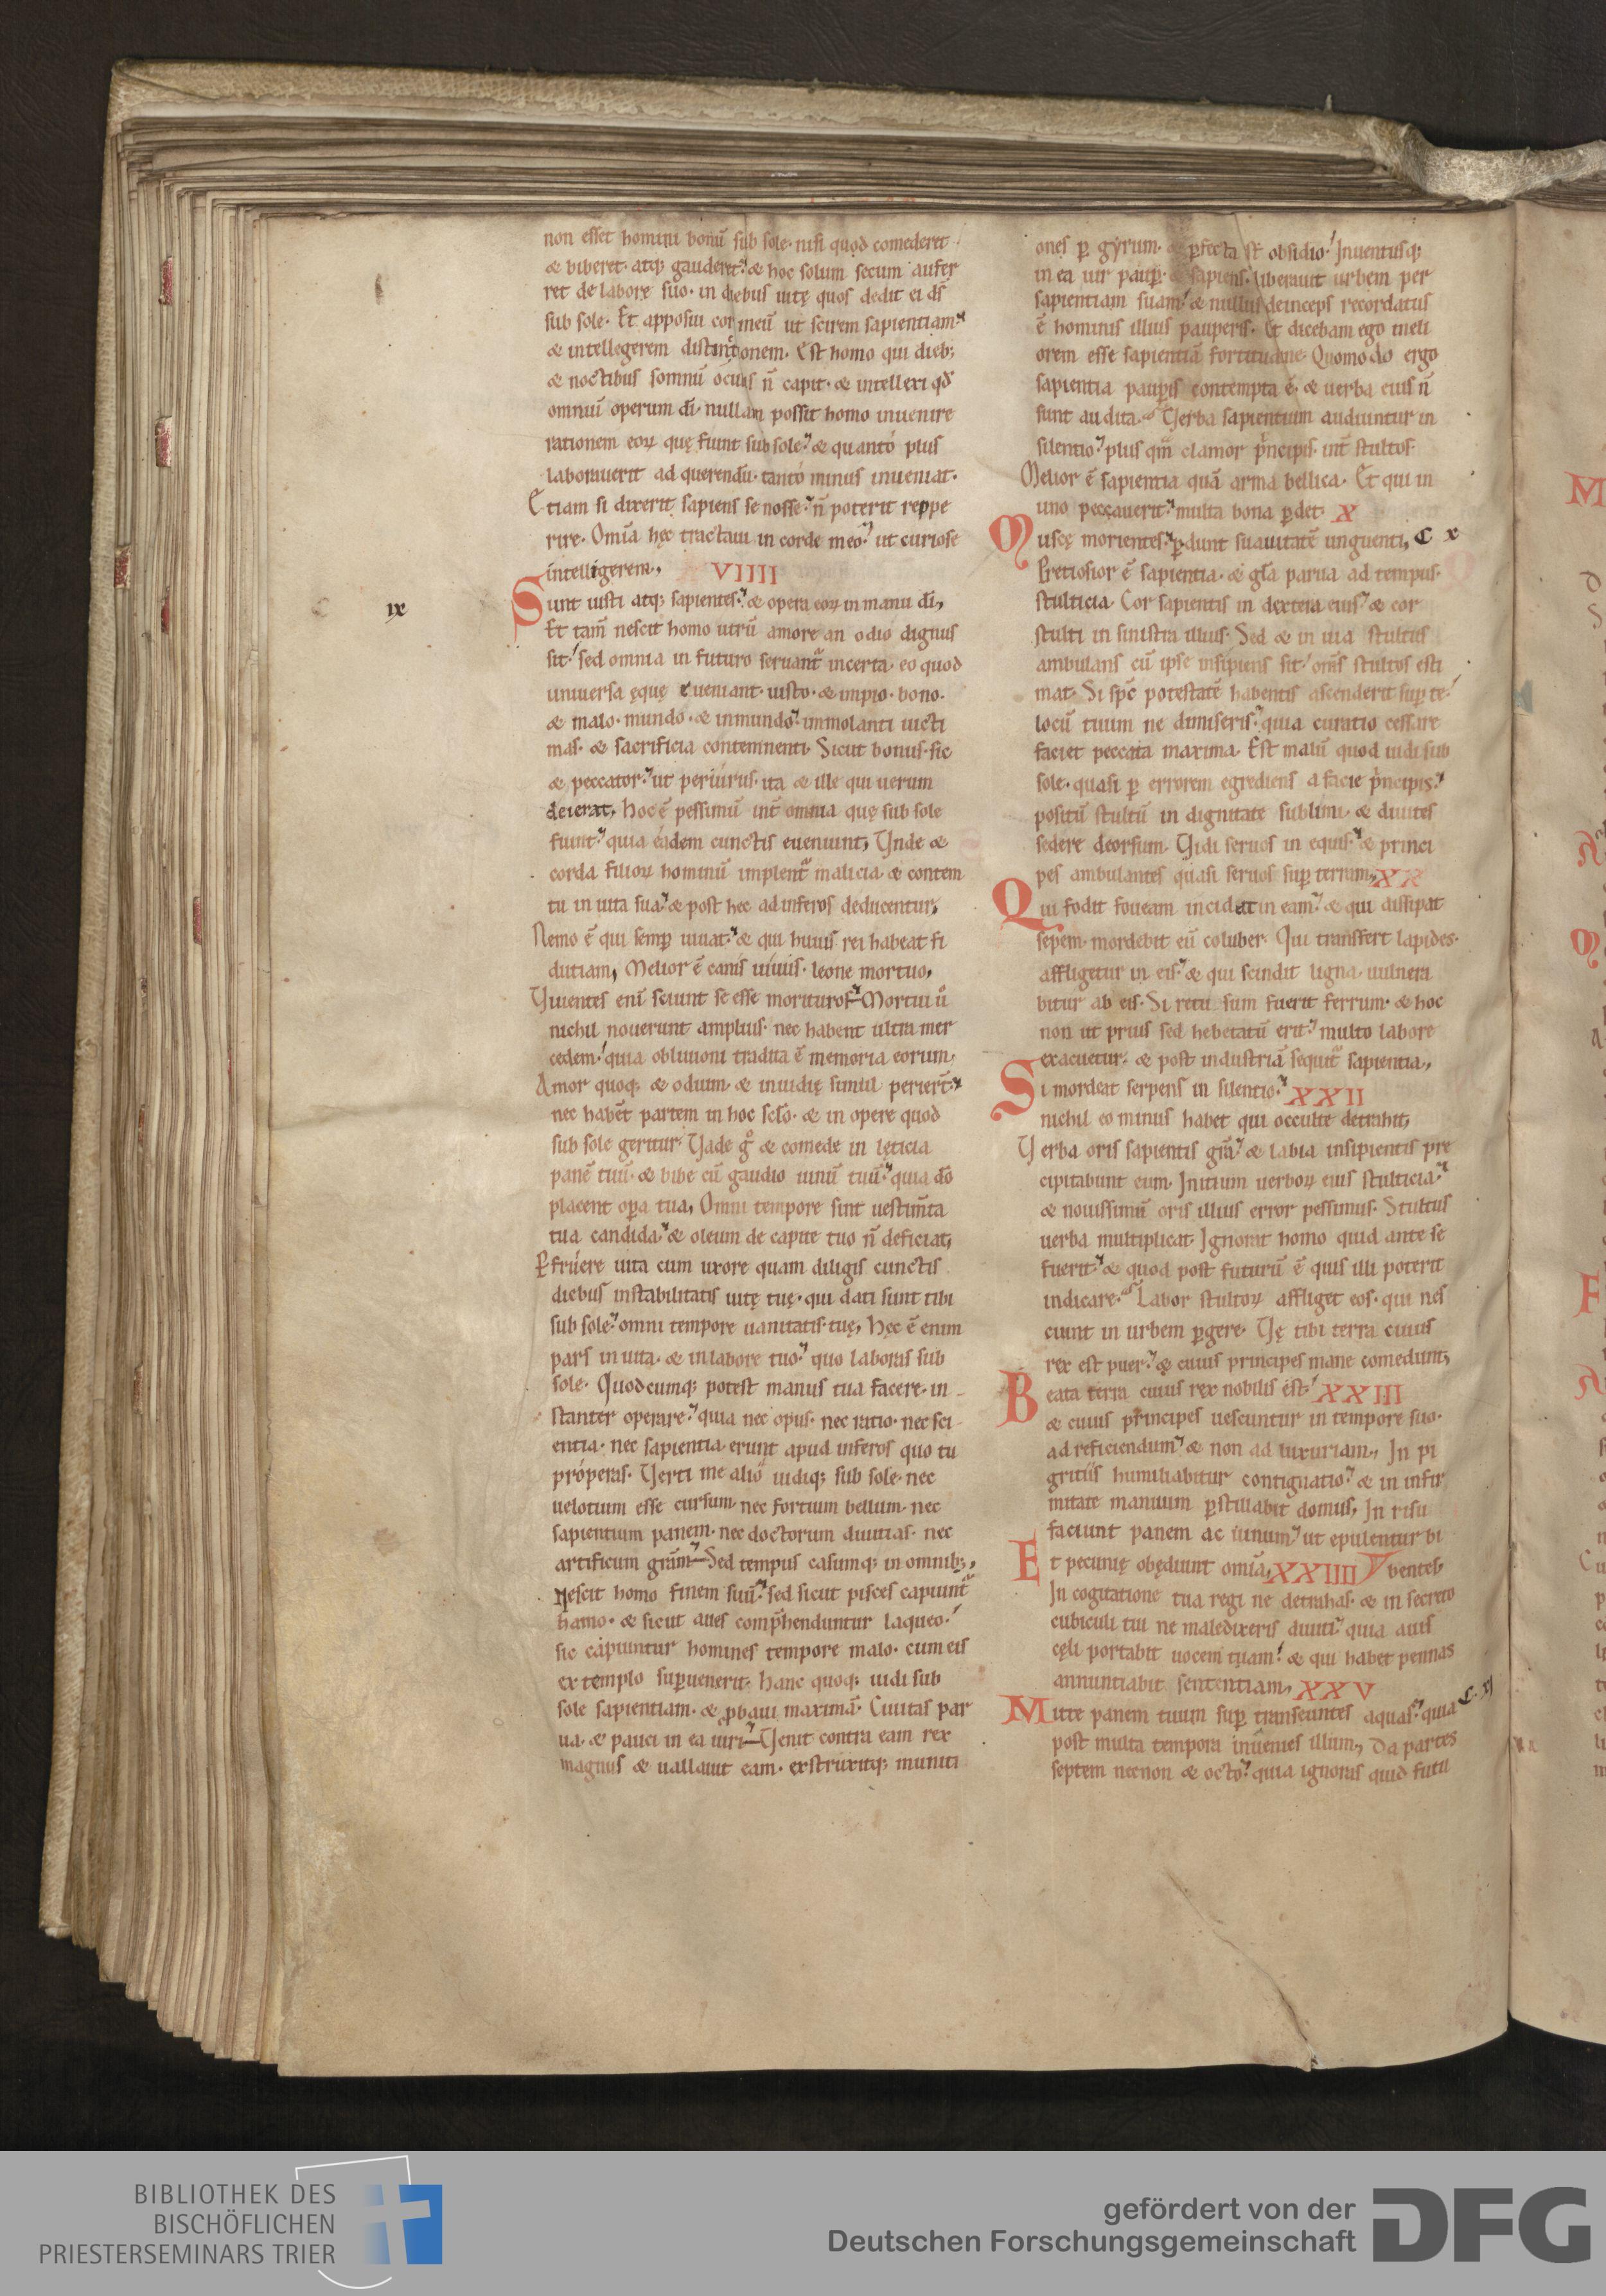 non esset homini bonũ sub sole· nisi quod comederet
& biberet· atq; gauderet· & hoc solum secum aufer
ret de labore suo· in diebus uitę quos dedit ei d̃s
sub sole· Et apposui cor meũ ut scirem sapientiam·
& intellegerem distentionem· Est homo qui dieb;
& noctibus somnũ oculis ñ capit· & intellexi qđ
omniũ operum dĩ· nullam possit homo inuenire
rationem eoꝝ quę fiunt sub sole· & quanto plus
laborauerit ad querendũ· tanto minus inueniat·
Etiam si dixerit sapiens se nosse· ñ poterit reppe
rire· Omĩa hęc tractaui in corde meo· ut curiose
intelligerem, VIIII
ix
Sunt iusti atq; sapientes· & opera eoꝝ in manu dĩ,
Et tam̃ nescit homo utrũ amore an odio dignus
sit· sed omnia in futuro seruant̃ incerta· eo quod
uniuersa ęque eueniant· iusto· & impio· bono·
& malo· mundo· & inmundo· immolanti uicti
mas· & sacrificia contemnenti· Sicut bonus· sic
& peccator· ut periurus· ita & ille qui uerum
deierat, Hoc ẽ pessimũ int̃ omnia quę sub sole
fiunt· quia eadem cunctis eueniunt, Unde &
corda filioꝝ hominũ implent̃ malicia· & contem
tu in uita sua· & post hec ad inferos deducentur,
Nemo ẽ qui semꝑ uiuat· & qui huius rei habeat fi
dutiam, Melior ẽ canis uiuus· leone mortuo,
Uiuentes enĩ sciunt se esse morituros· Mortui ũ
nichil nouerunt amplius· nec habent ultra mer
cedem· quia obliuioni tradita ẽ memoria eorum,
Amor quoq; & odium· & inuidię simul perier̃t·
nec habẽt partem in hoc sc̃lo· & in opere quod
sub sole geritur· Uade g̊ & comede in lęticia
panẽ tuũ· & bibe cũ gaudio uinũ tuũ· quia dõ
placent oꝑa tua, Omni tempore sint uestim̃ta
tua candida· & oleum de capite tuo ñ deficiat,
Ꝑfruere uita cum uxore quam diligis cunctis
diebus instabilitatis uitę tuę· qui dati sunt tibi
sub sole· omni tempore uanitatis tuę, Hęc ẽ enim
pars in uita· & in labore tuo· quo laboras sub
sole· Quodcumq; potest manus tua facere· in
stanter operare· quia nec opus· nec ratio· nec sci
entia· nec sapientia· erunt apud inferos quo tu
properas· Uerti me alio uidiq; sub sole· nec
uelotium esse cursum· nec fortium bellum· nec
sapientium panem· nec doctorum diuitias· nec
artificum grãm· Sed tempus casumq; in omnib;,
Nescit homo finem suũ· sed sicut pisces capiunt̃
hamo· & sicut aues comp̃henduntur laqueo·
sic capiuntur homines tempore malo· cum eis
extemplo suꝑuenerit· Hanc quoq; uidi sub
sole sapientiam· & ꝓbaui maximã· Ciuitas par
ua· & pauci in ea uiri· Uenit contra eam rex
magnus & uallauit eam· exstruxitq; muniti
ones ꝑ gyrum· & ꝑfecta st̃ obsidio· Inuentusq;
in ea uir pauꝑ· & sapiens· liberauit urbem per
sapientiam suam· & nullus deinceps recordatus
ẽ hominis illius pauperis· Et dicebam ego meli
orem esse sapientiã fortitudine· Quomodo ergo
sapientia pauꝑis contempta ẽ· & uerba eius ñ
sunt audita· Uerba sapientium audiuntur in
silentio· plus qm̃ clamor p̃ncipis· int̃ stultos·
Melior ẽ sapientia quã arma bellica· Et qui in
uno peccauerit· multa bona ꝑdet· X
Muscę morientes· ꝑdunt suauitatẽ unguenti, C x
Pretiosior ẽ sapientia· & gl̃a parua ad tempus·
stulticia· Cor sapientis in dextera eius· & cor
stulti in sinistra illius· Sed & in uia stultus
ambulans cũ ipse insipiens sit· om̃s stultos esti
mat· Si sp̃c potestatẽ habentis ascenderit suꝑ te·
locũ tuum ne dimiseris· quia curatio cessare
faciet peccata maxima· Est malũ quod uidi sub
sole· quasi ꝑ errorem egrediens a facie p̃ncipis·
positũ stultũ in dignitate sublimi· & diuites
sedere deorsum· Uidi seruos in equis· & princi
pes ambulantes quasi seruos suꝑ terram, XX
Qui fodit foueam incidet in eam· & qui dissipat
sepem· mordebit eũ coluber· Qui transfert lapides·
affligetur in eis· & qui scindit ligna· uulnera
bitur ab eis· Si retu sum fuerit ferrum· & hoc
non ut prius sed hebetatũ erit· multo labore
exacuetur· & post industriã sequit̃ sapientia,
Si mordeat serpens in silentio· XXII
nichil eo minus habet qui occulte detrahit,
Uerba oris sapientis gr̃a· & labia insipientis pre
cipitabunt eum· Initium uerboꝝ eius stulticia·
& nouissimũ oris illius error pessimus· Stultus
uerba multiplicat· Ignorat homo quid ante se
fuerit· & quod post futurũ ẽ quis illi poterit
indicare· Labor stultoꝝ affliget eos· qui nes
ciunt in urbem ꝑgere· Uę tibi terra cuius
rex est puer· & cuius principes mane comedunt,
Beata terra cuius rex nobilis est· XXIII
& cuius principes uescuntur in tempore suo·
ad reficiendum· & non ad luxuriam, In pi
gritiis humiliabitur contignatio· & in infir
mitate manuum ꝑstillabit̃ domus, In risu
faciunt panem ac uinum· ut epulentur bi
Et pecunię obędiunt omĩa, XXIIII uentes·
In cogitatione tua regi ne detrahas· & in secreto
cubiculi tui ne maledixeris diuiti· quia auis
cęli portabit uocem tuam· & qui habet pennas
annuntiabit sententiam, XXV
Mitte panem tuum suꝑ transeuntes aquas· quia C· xj
post multa tempora inuenies illum, Da partes
septem necnon & octo· quia ignoras quid futu
BIBLIOTHEK DES
BISCHÖFLICHEN
PRIESTERSEMINARS TRIER
gefördert von der
Deutschen Forschungsgemeinschaft
DFG